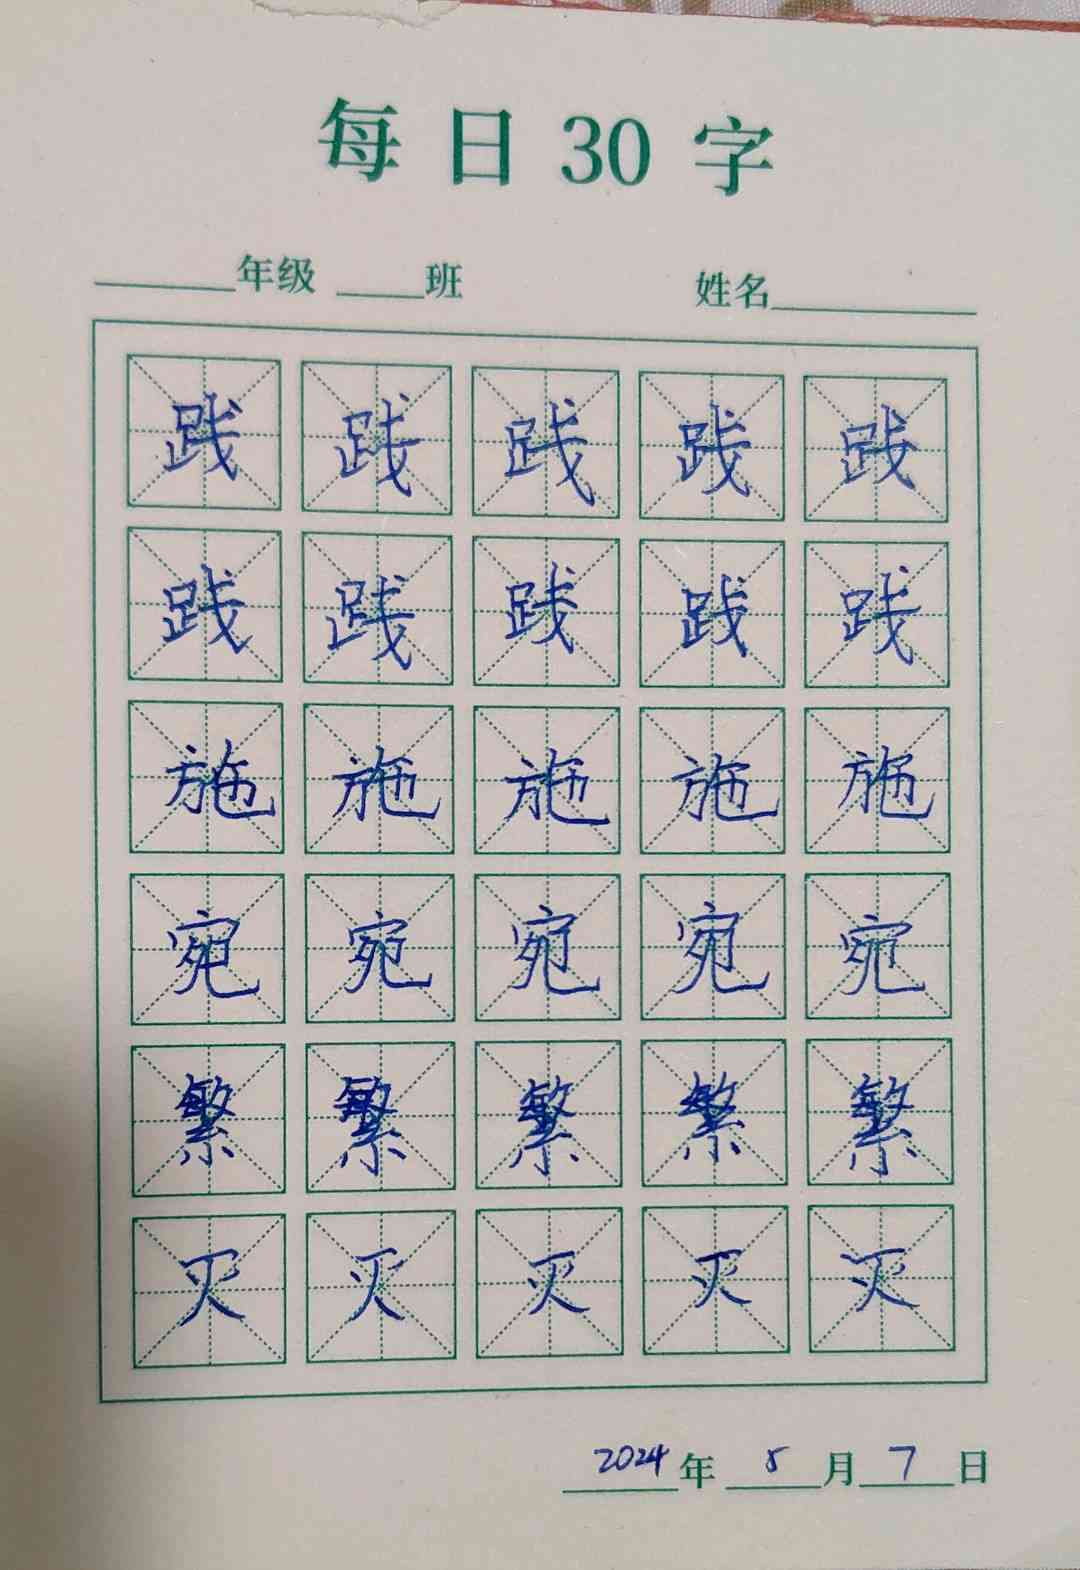 每日30字
年级 班 姓名
践 践 践 践 践
践 践 践 践 践
施 施 施 施 施
宛 宛 宛 宛 宛
繁 繁 繁 繁 繁
灭 灭 灭 灭 灭
2024年 8月 7日